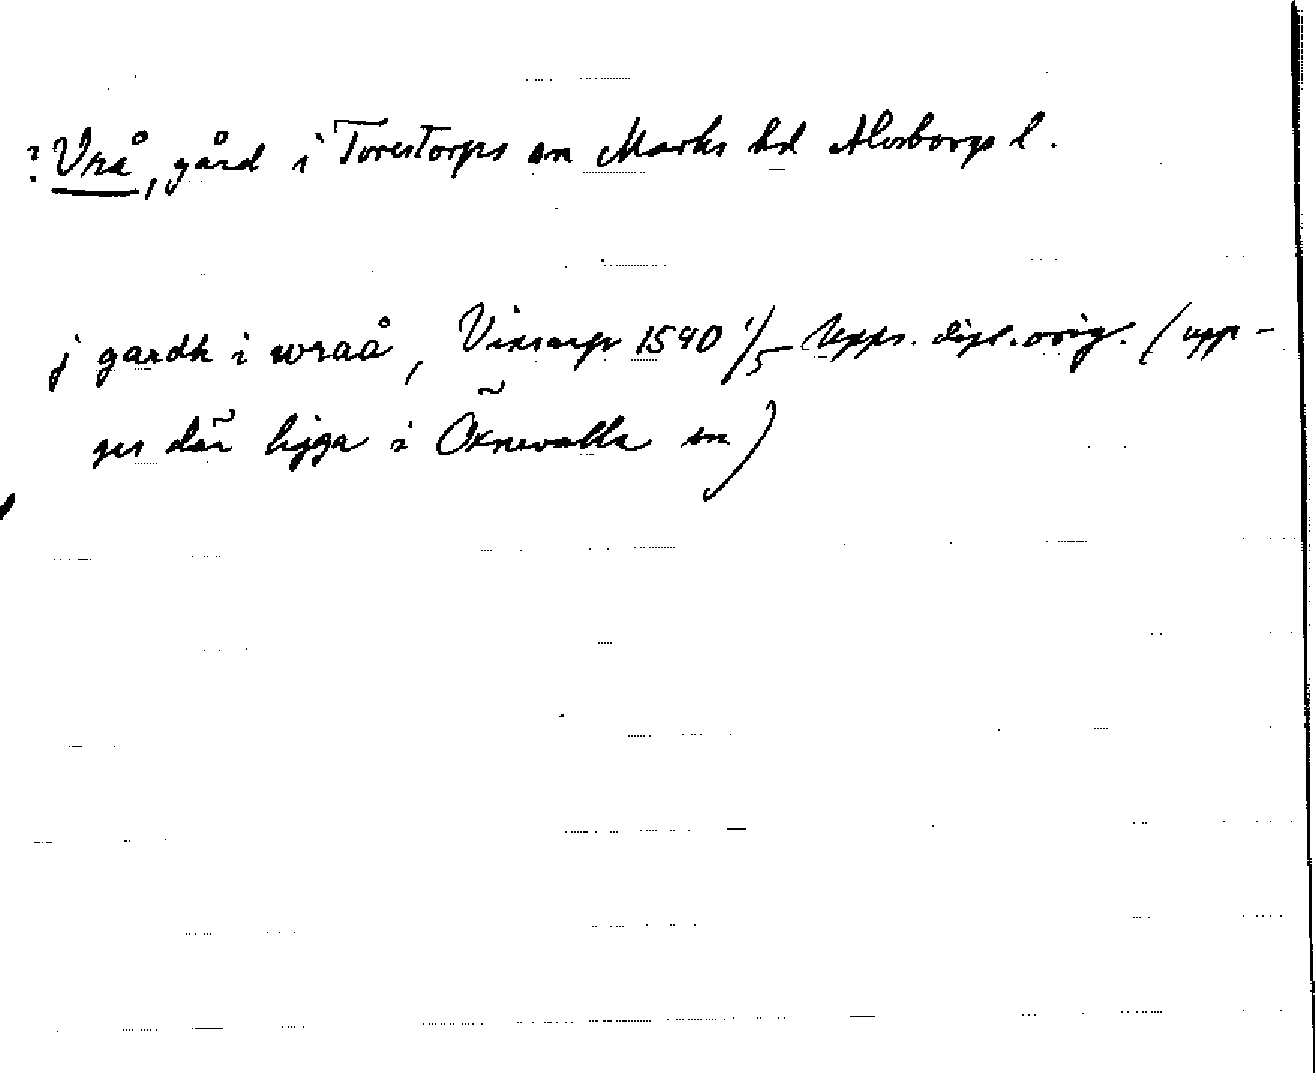 ? Vrå, gård i Torestorps sn Marks hd Älvsborgs l.
j gardh i wraå, 1540 1/5 Upps. dipl. orig. (upp-
ges där ligga i Öxnevalla sn)